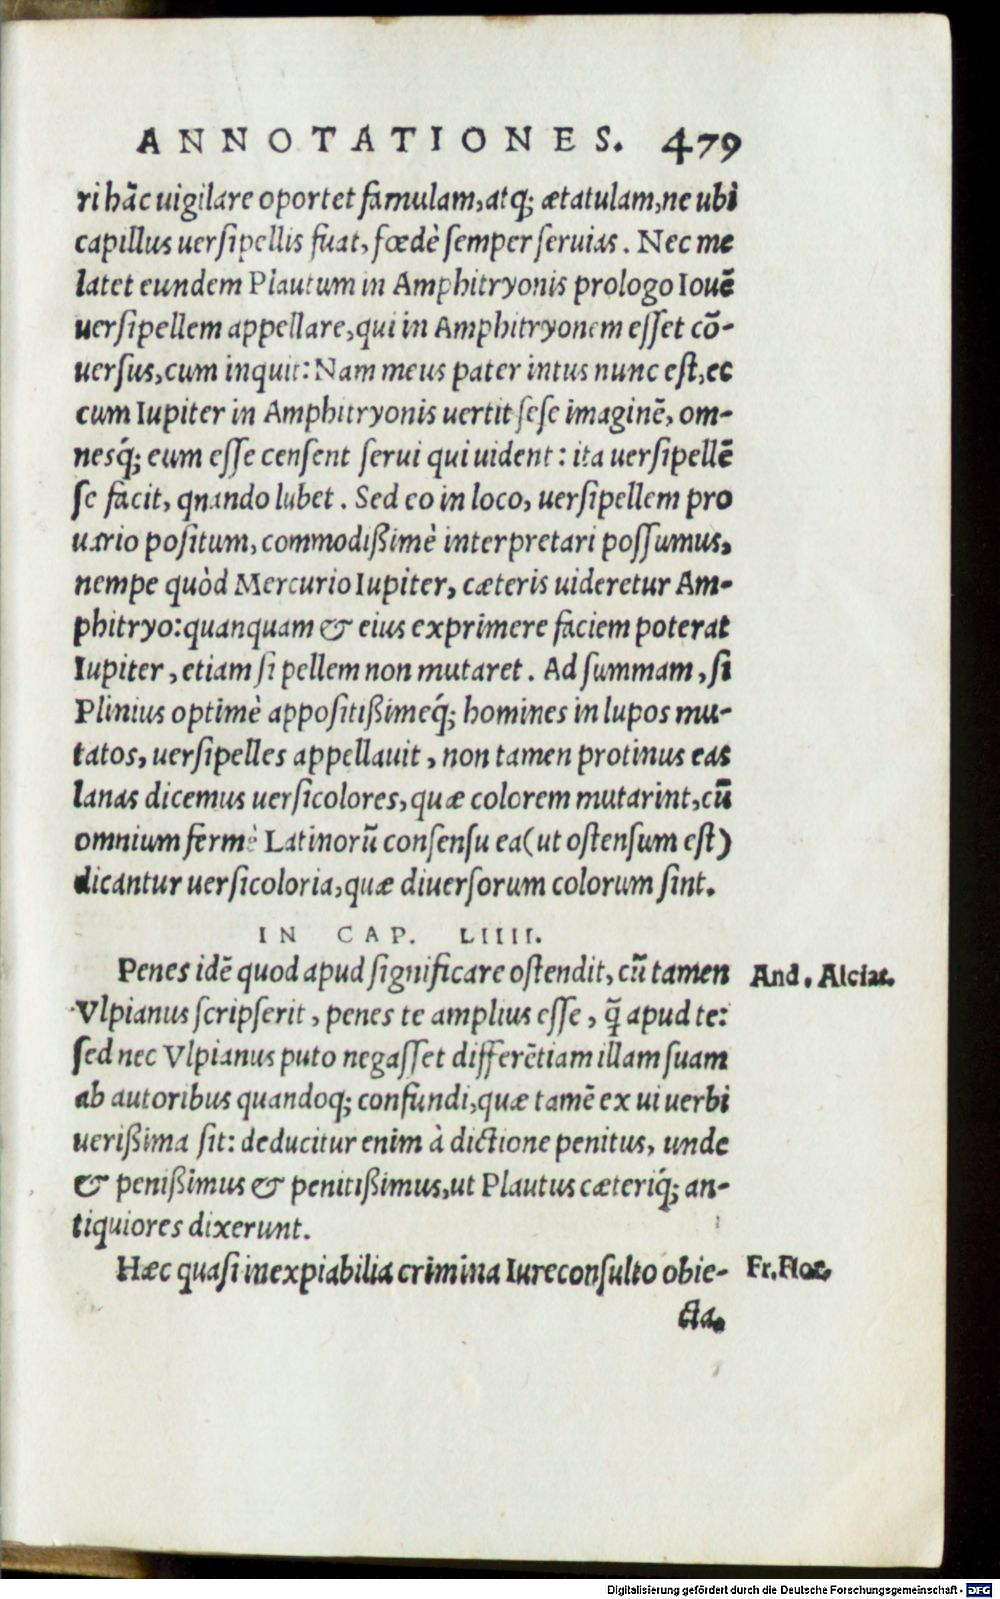 ANNOTATIONES. 479
ri hāc uigilare oportet famulam, atq; ætatulam, ne ubi
capillus uerſipellis fuat, fœdè ſemper ſeruias. Nec me
latet eundem Plautum in Amphitryonis prologo Iouē
uerſipellem appellare, qui in Amphitryonem eſſet cō-
uerſus, cum inquit: Nam meus pater intus nunc eſt, ec
cum Iupiter in Amphitryonis uertit ſeſe imaginē, om-
nesq́; eum eſſe cenſent ſerui qui uident: ita uerſipellē
ſe facit, quando lubet. Sed eo in loco, uerſipellem pro
uario poſitum, commodißimè interpretari poſſumus,
nempe quòd Mercurio Iupiter, cæteris uideretur Am-
phitryo: quanquam & eius exprimere faciem poterat
Iupiter, etiam ſi pellem non mutaret. Ad ſummam, ſi
Plinius optimè appoſitißimeq́; homines in lupos mu-
tatos, uerſipelles appellauit, non tamen protinus eas
lanas dicemus uerſicolores, quæ colorem mutarint, cū
omnium fermè Latinorū conſenſu ea (ut oſtenſum eſt)
dicantur uerſicoloria, quæ diuerſorum colorum ſint.
IN CAP. LIIII.
Penes idē quod apud ſignificare oſtendit, cū tamen And. Alciat.
Vlpianus ſcripſerit, penes te amplius eſſe, q̄ apud te:
ſed nec Vlpianus puto negaſſet differētiam illam ſuam
ab autoribus quandoq; confundi, quæ tamē ex ui uerbi
uerißima ſit: deducitur enim à dictione penitus, unde
& penißimus & penitißimus, ut Plautus cæteriq́; an-
tiquiores dixerunt.
Hæc quaſi inexpiabilia crimina Iureconſulto obie- Fr. Flor.
cta.
Digitalisierung gefördert durch die Deutsche Forschungsgemeinschaft - DFG